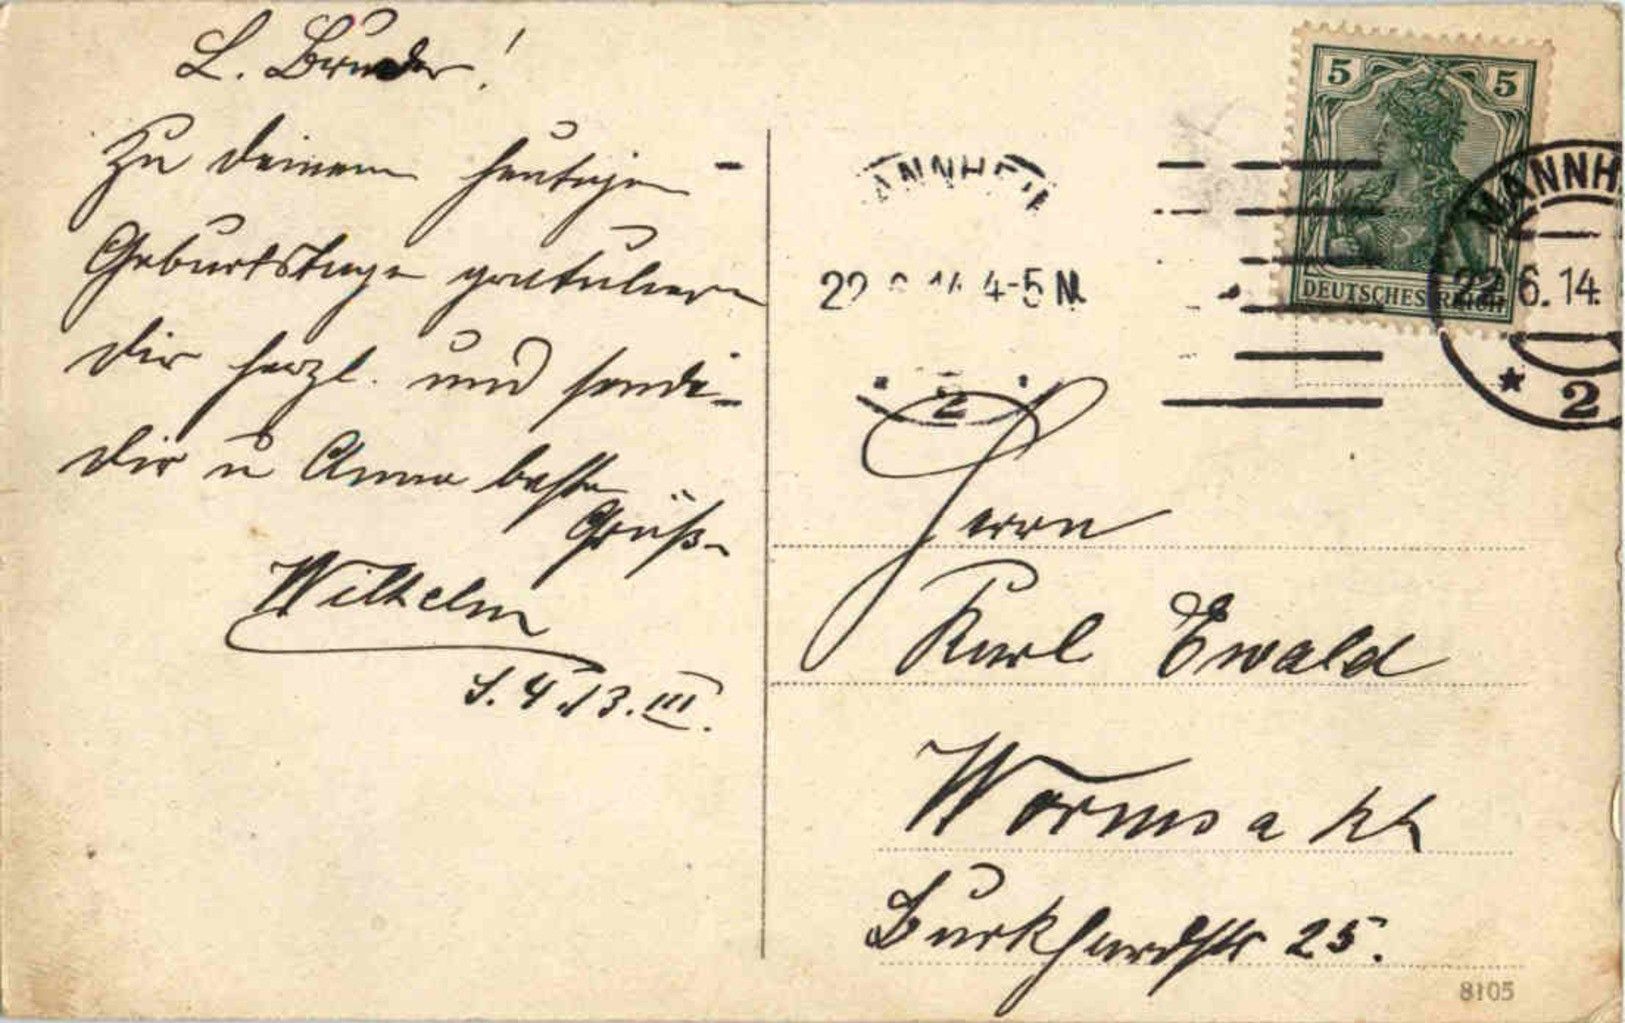 L. Bruder!
Zu deinem heutigen
Geburtstage gratuliere
dir herzl. und sende
dir u Anna beste
Grüße
Wilhelm
S. 4. 13. III.
5 5
DEUTSCHES REICH
MANNHEIM
22 14 4-5 N.
2
MANNH
22.6.14.
* 2
Herrn
Karl Ewald
Worms a Rh
Burkhardstr 25.
8105